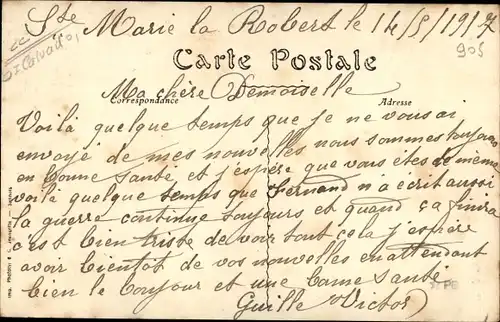 Ste Marie la Robert le 14/5/1917
Calvados
905
Carte Postale
Ma chère Demoiselle
Correspondance
Adresse
Voilà quelque temps que je ne vous ai
envoyé de mes nouvelles nous sommes toujours
en bonne santé et j'espère que vous êtes de même
voilà quelque temps que Fernand n'a ecrit aussi
la guerre continue toujours et quand ça finira
c'est bien triste de voir tout cela j'espère
avoir bientot de vos nouvelles en attendant
bien le bonjour et une bonne santé
Guille Victor